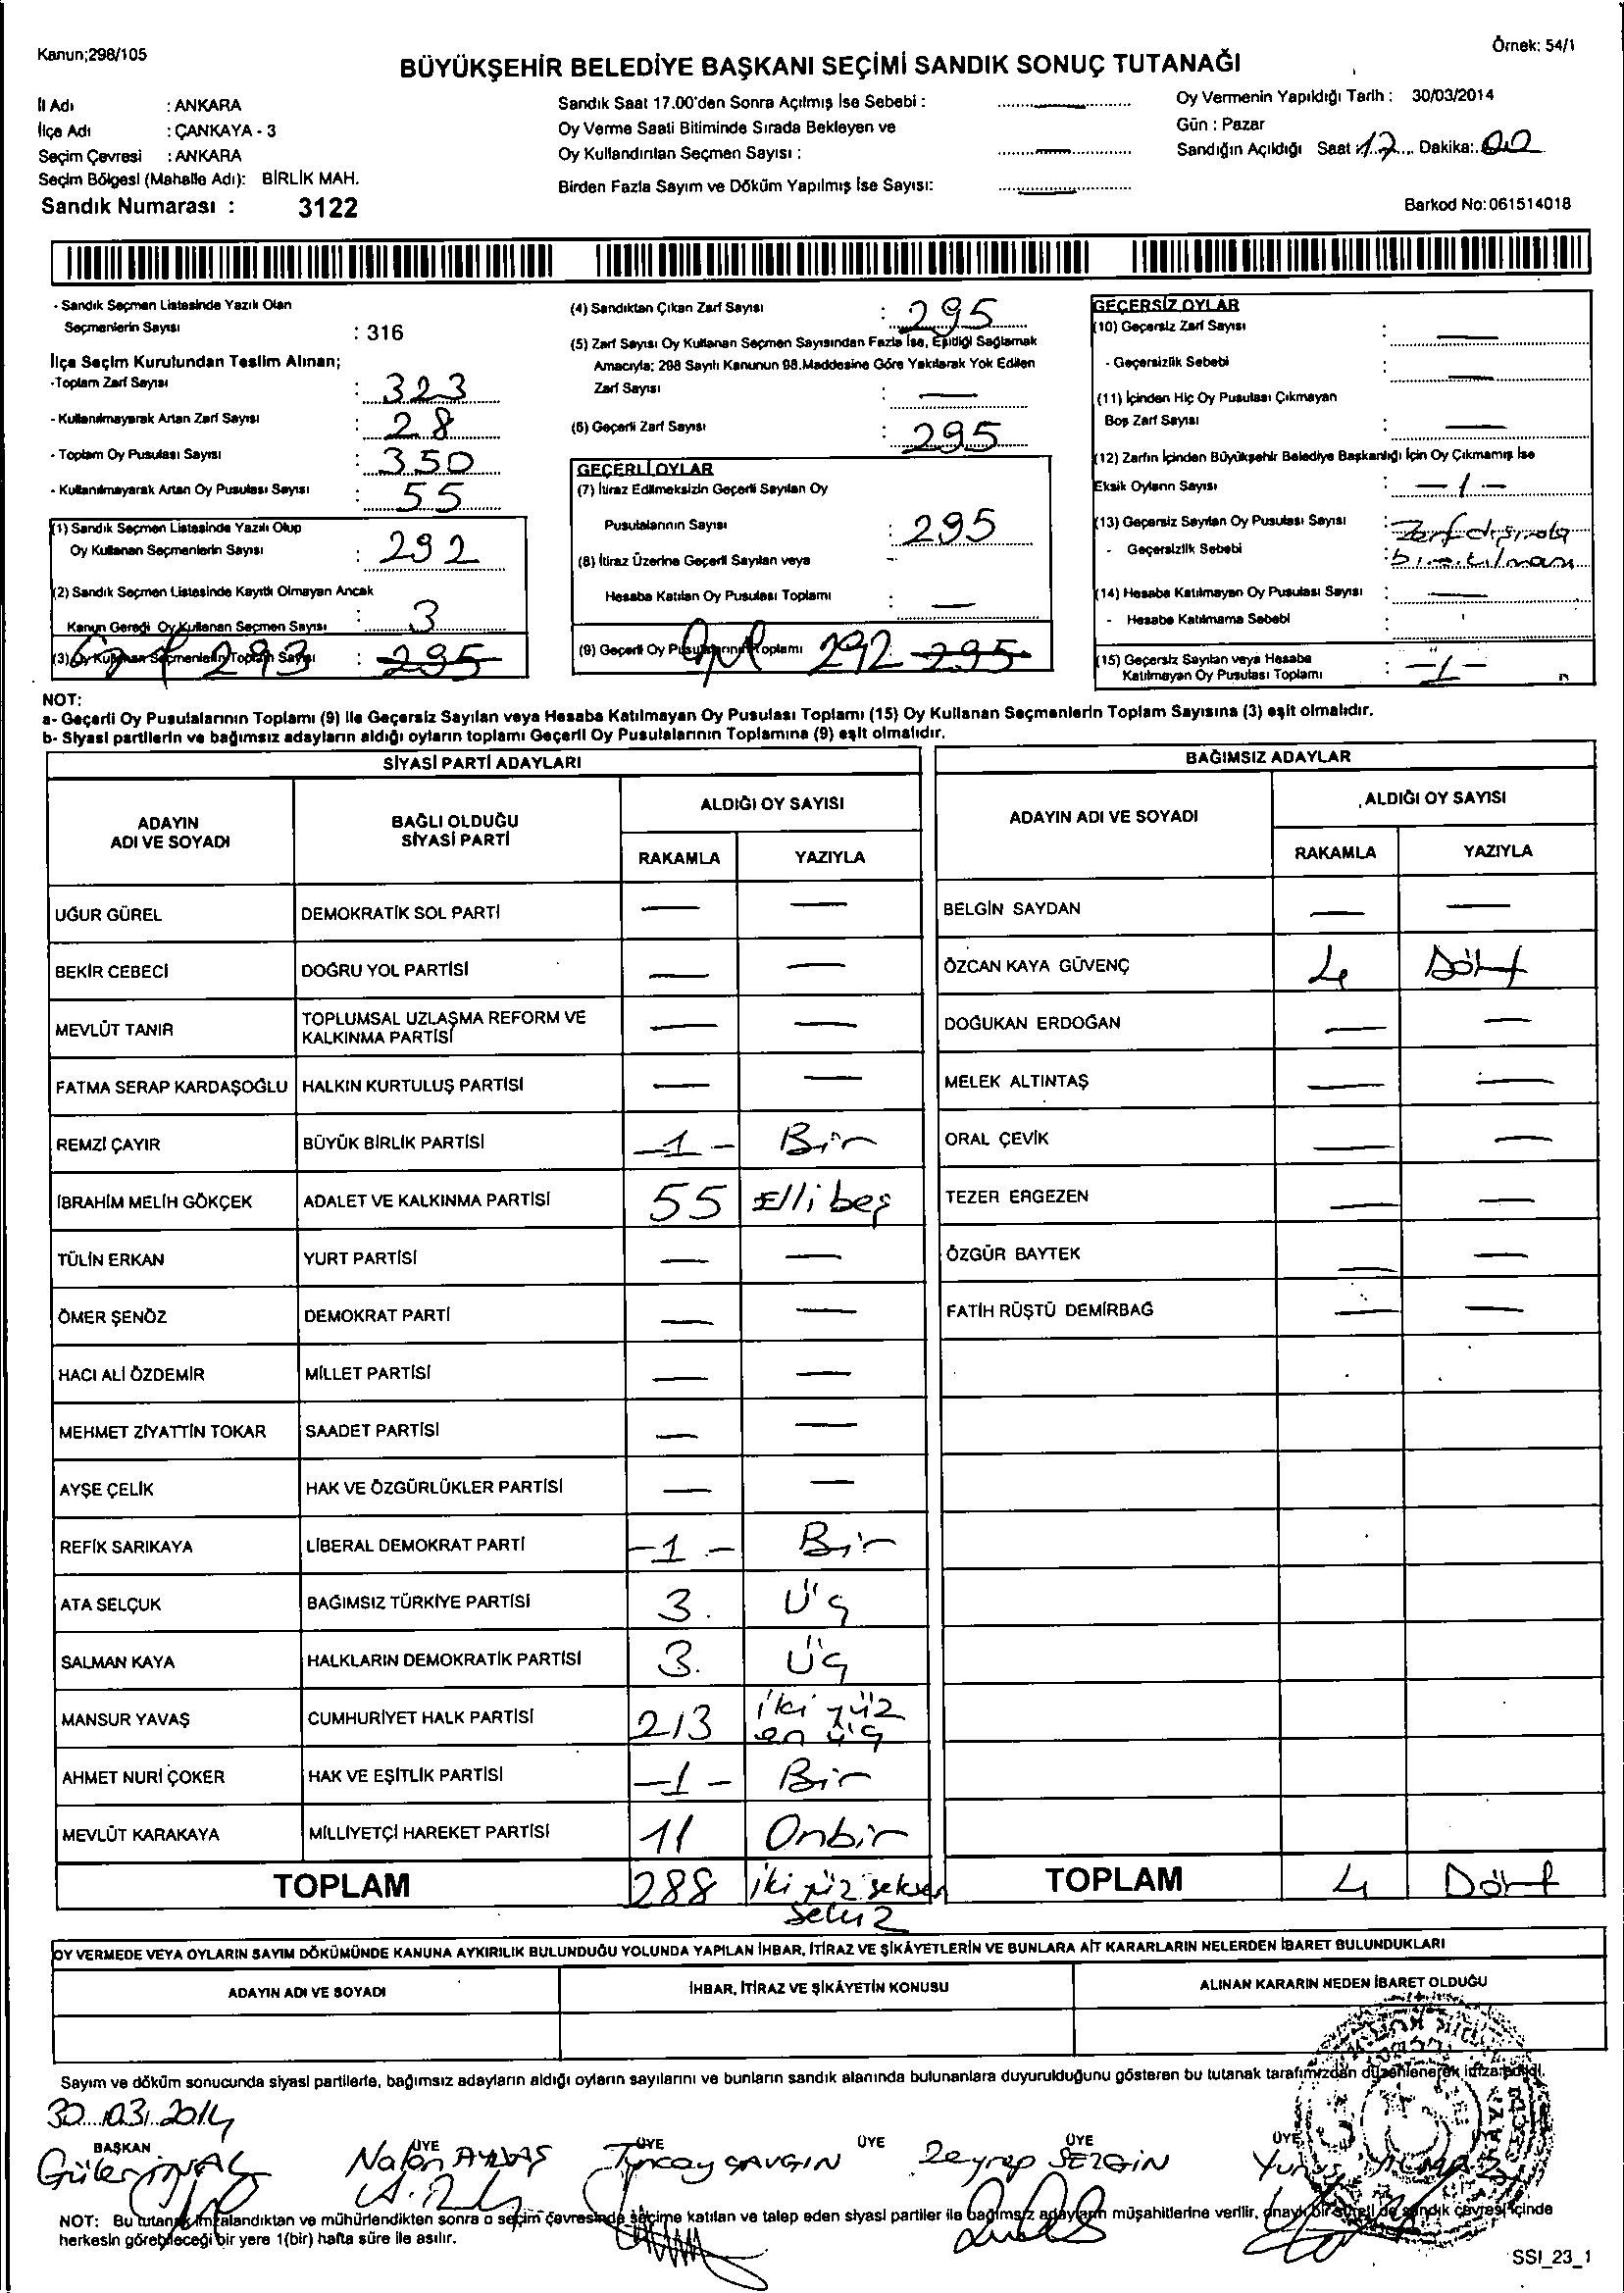 Kanun;298/105
Örnek: 54/1
BÜYÜKŞEHİR BELEDİYE BAŞKANI SEÇİMİ SANDIK SONUÇ TUTANAĞI
İl Adı : ANKARA
İlçe Adı : ÇANKAYA - 3
Seçim Çevresi : ANKARA
Seçim Bölgesi (Mahalle Adı): BİRLİK MAH.
Sandık Numarası : 3122
Sandık Saat 17.00'den Sonra Açılmış İse Sebebi :
Oy Verme Saati Bitiminde Sırada Bekleyen ve
Oy Kullandırılan Seçmen Sayısı :
Birden Fazla Sayım ve Döküm Yapılmış İse Sayısı:
Oy Vermenin Yapıldığı Tarih : 30/03/2014
Gün : Pazar
Sandığın Açıldığı Saat : 17 Dakika: 00
Barkod No:061514018
- Sandık Seçmen Listesinde Yazılı Olan
Seçmenlerin Sayısı : 316
İlçe Seçim Kurulundan Teslim Alınan;
-Toplam Zarf Sayısı : 323
- Kullanılmayarak Artan Zarf Sayısı : 28
- Toplam Oy Pusulası Sayısı : 350
- Kullanılmayarak Artan Oy Pusulası Sayısı : 55
(1) Sandık Seçmen Listesinde Yazılı Olup
Oy Kullanan Seçmenlerin Sayısı : 292
(2) Sandık Seçmen Listesinde Kayıtlı Olmayan Ancak
Kanun Gereği Oy Kullanan Seçmen Sayısı : 3
(3) Oy Kullanan Seçmenlerin Toplam Sayısı : 293 295
(4) Sandıktan Çıkan Zarf Sayısı : 295
(5) Zarf Sayısı Oy Kullanan Seçmen Sayısından Fazla İse, Eşitliği Sağlamak
Amacıyla; 298 Sayılı Kanunun 98.Maddesine Göre Yakılarak Yok Edilen
Zarf Sayısı : —
(6) Geçerli Zarf Sayısı : 295
GEÇERLİ OYLAR
(7) İtiraz Edilmeksizin Geçerli Sayılan Oy
Pusulalarının Sayısı : 295
(8) İtiraz Üzerine Geçerli Sayılan veya
Hesaba Katılan Oy Pusulası Toplamı : —
(9) Geçerli Oy Pusulalarının Toplamı 292 295
GEÇERSİZ OYLAR
(10) Geçersiz Zarf Sayısı : —
- Geçersizlik Sebebi : —
(11) İçinden Hiç Oy Pusulası Çıkmayan
Boş Zarf Sayısı : —
(12) Zarfın İçinden Büyükşehir Belediye Başkanlığı İçin Oy Çıkmamış İse
Eksik Oyların Sayısı : -1-
(13) Geçersiz Sayılan Oy Pusulası Sayısı : Zarf dışında
- Geçersizlik Sebebi : bırakılması
(14) Hesaba Katılmayan Oy Pusulası Sayısı : —
- Hesaba Katılmama Sebebi :
(15) Geçersiz Sayılan veya Hesaba
Katılmayan Oy Pusulası Toplamı : -1-
NOT:
a- Geçerli Oy Pusulalarının Toplamı (9) ile Geçersiz Sayılan veya Hesaba Katılmayan Oy Pusulası Toplamı (15) Oy Kullanan Seçmenlerin Toplam Sayısına (3) eşit olmalıdır.
b- Siyasi partilerin ve bağımsız adayların aldığı oyların toplamı Geçerli Oy Pusulalarının Toplamına (9) eşit olmalıdır.
SİYASİ PARTİ ADAYLARI
ADAYIN ADI VE SOYADI
BAĞLI OLDUĞU SİYASİ PARTİ
ALDIĞI OY SAYISI
RAKAMLA YAZIYLA
UĞUR GÜREL DEMOKRATİK SOL PARTİ — —
BEKİR CEBECİ DOĞRU YOL PARTİSİ — —
MEVLÜT TANIR TOPLUMSAL UZLAŞMA REFORM VE KALKINMA PARTİSİ — —
FATMA SERAP KARDAŞOĞLU HALKIN KURTULUŞ PARTİSİ — —
REMZİ ÇAYIR BÜYÜK BİRLİK PARTİSİ -1- Bir
İBRAHİM MELİH GÖKÇEK ADALET VE KALKINMA PARTİSİ 55 Elli beş
TÜLİN ERKAN YURT PARTİSİ — —
ÖMER ŞENÖZ DEMOKRAT PARTİ — —
HACI ALİ ÖZDEMİR MİLLET PARTİSİ — —
MEHMET ZİYATTİN TOKAR SAADET PARTİSİ — —
AYŞE ÇELİK HAK VE ÖZGÜRLÜKLER PARTİSİ — —
REFİK SARIKAYA LİBERAL DEMOKRAT PARTİ -1- Bir
ATA SELÇUK BAĞIMSIZ TÜRKİYE PARTİSİ 3. Üç
SALMAN KAYA HALKLARIN DEMOKRATİK PARTİSİ 3. Üç
MANSUR YAVAŞ CUMHURİYET HALK PARTİSİ 213 iki yüz on üç
AHMET NURİ ÇOKER HAK VE EŞİTLİK PARTİSİ -1- Bir
MEVLÜT KARAKAYA MİLLİYETÇİ HAREKET PARTİSİ 11 Onbir
TOPLAM 288 iki yüz seksen sekiz
BAĞIMSIZ ADAYLAR
ADAYIN ADI VE SOYADI
ALDIĞI OY SAYISI
RAKAMLA YAZIYLA
BELGİN SAYDAN — —
ÖZCAN KAYA GÜVENÇ 4 Dört
DOĞUKAN ERDOĞAN — —
MELEK ALTINTAŞ — —
ORAL ÇEVİK — —
TEZER ERGEZEN — —
ÖZGÜR BAYTEK — —
FATİH RÜŞTÜ DEMİRBAĞ — —
TOPLAM 4 Dört
OY VERMEDE VEYA OYLARIN SAYIM DÖKÜMÜNDE KANUNA AYKIRILIK BULUNDUĞU YOLUNDA YAPILAN İHBAR, İTİRAZ VE ŞİKÂYETLERİN VE BUNLARA AİT KARARLARIN NELERDEN İBARET BULUNDUKLARI
ADAYIN ADI VE SOYADI
İHBAR, İTİRAZ VE ŞİKÂYETİN KONUSU
ALINAN KARARIN NEDEN İBARET OLDUĞU
Sayım ve döküm sonucunda siyasi partilerle, bağımsız adayların aldığı oyların sayılarını ve bunların sandık alanında bulunanlara duyurulduğunu gösteren bu tutanak tarafımızdan düzenlenerek imzalandı.
30.03.2014
BAŞKAN ÜYE ÜYE ÜYE ÜYE ÜYE
Güler İNAL Nalan Tuncay SAVGIN Zeynep SEZGİN Yunus
NOT: Bu tutanak imzalandıktan ve mühürlendikten sonra o seçim çevresinde seçime katılan ve talep eden siyasi partiler ile bağımsız adayların müşahitlerine verilir, onaylı bir sureti de sandık çevresi içinde
herkesin görebileceği bir yere 1(bir) hafta süre ile asılır.
SSI_23_1